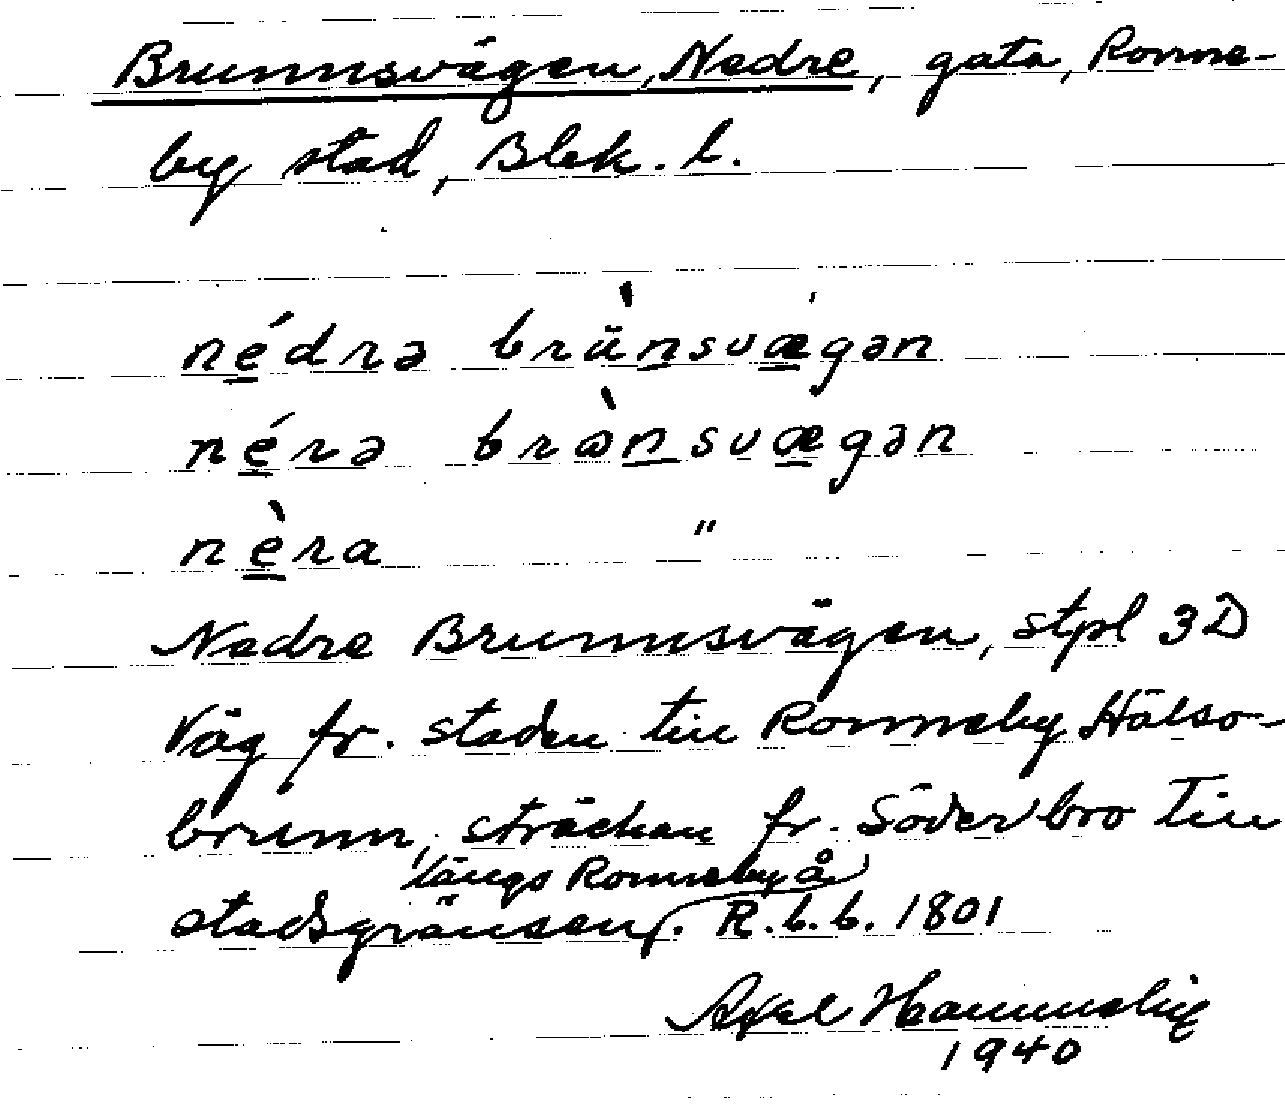 Brunnsvägen, Nedre, gata, Ronne-
by stad, Blek. l.
nédrə brǜnsvægən
nérə brònsvægən
nèra "
Nedre Brunnsvägen, stpl 3D
Väg fr. staden till Ronneby Hälso-
brunn, sträckan fr. Söderbro till
längs Ronneby å
stadsgränsen. R.b.b. 1801
Axel
1940